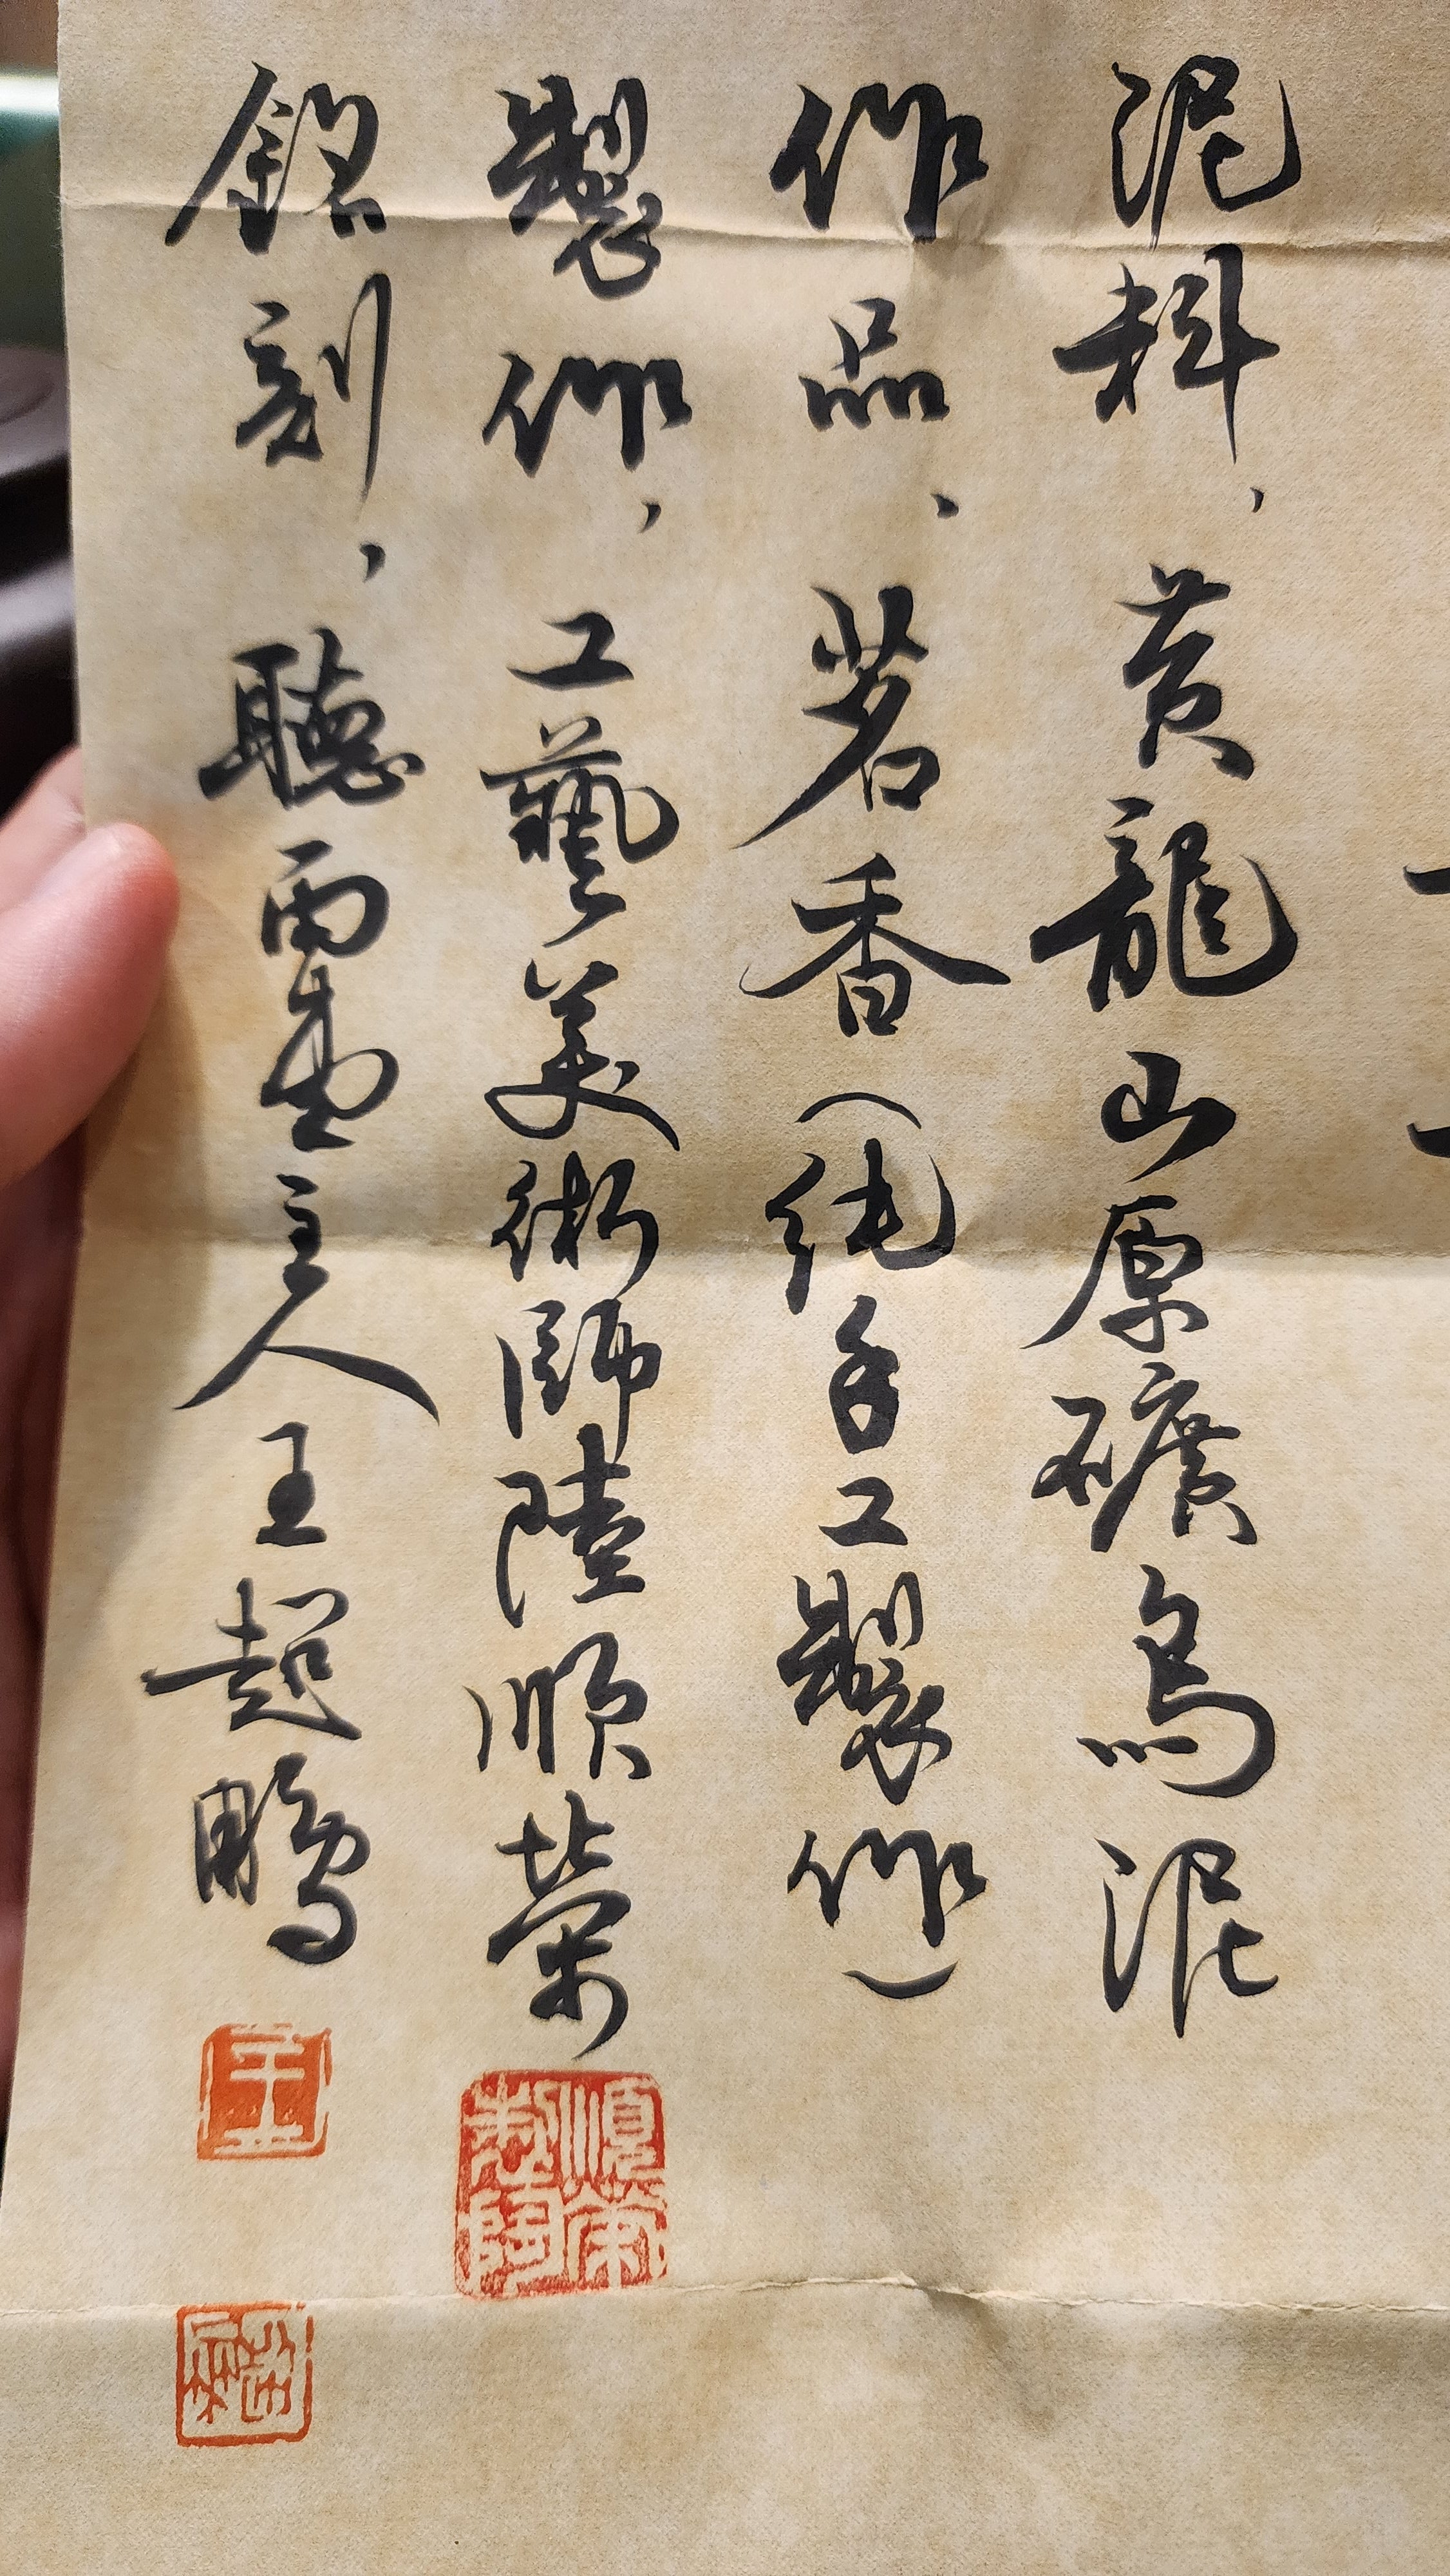 泥料，黄龍山原礦烏泥
作品、茗香（純手工製作）
製作，工藝美術師陸順榮
刻，聽雨主人王超鵬
順榮製陶
王
超鵬